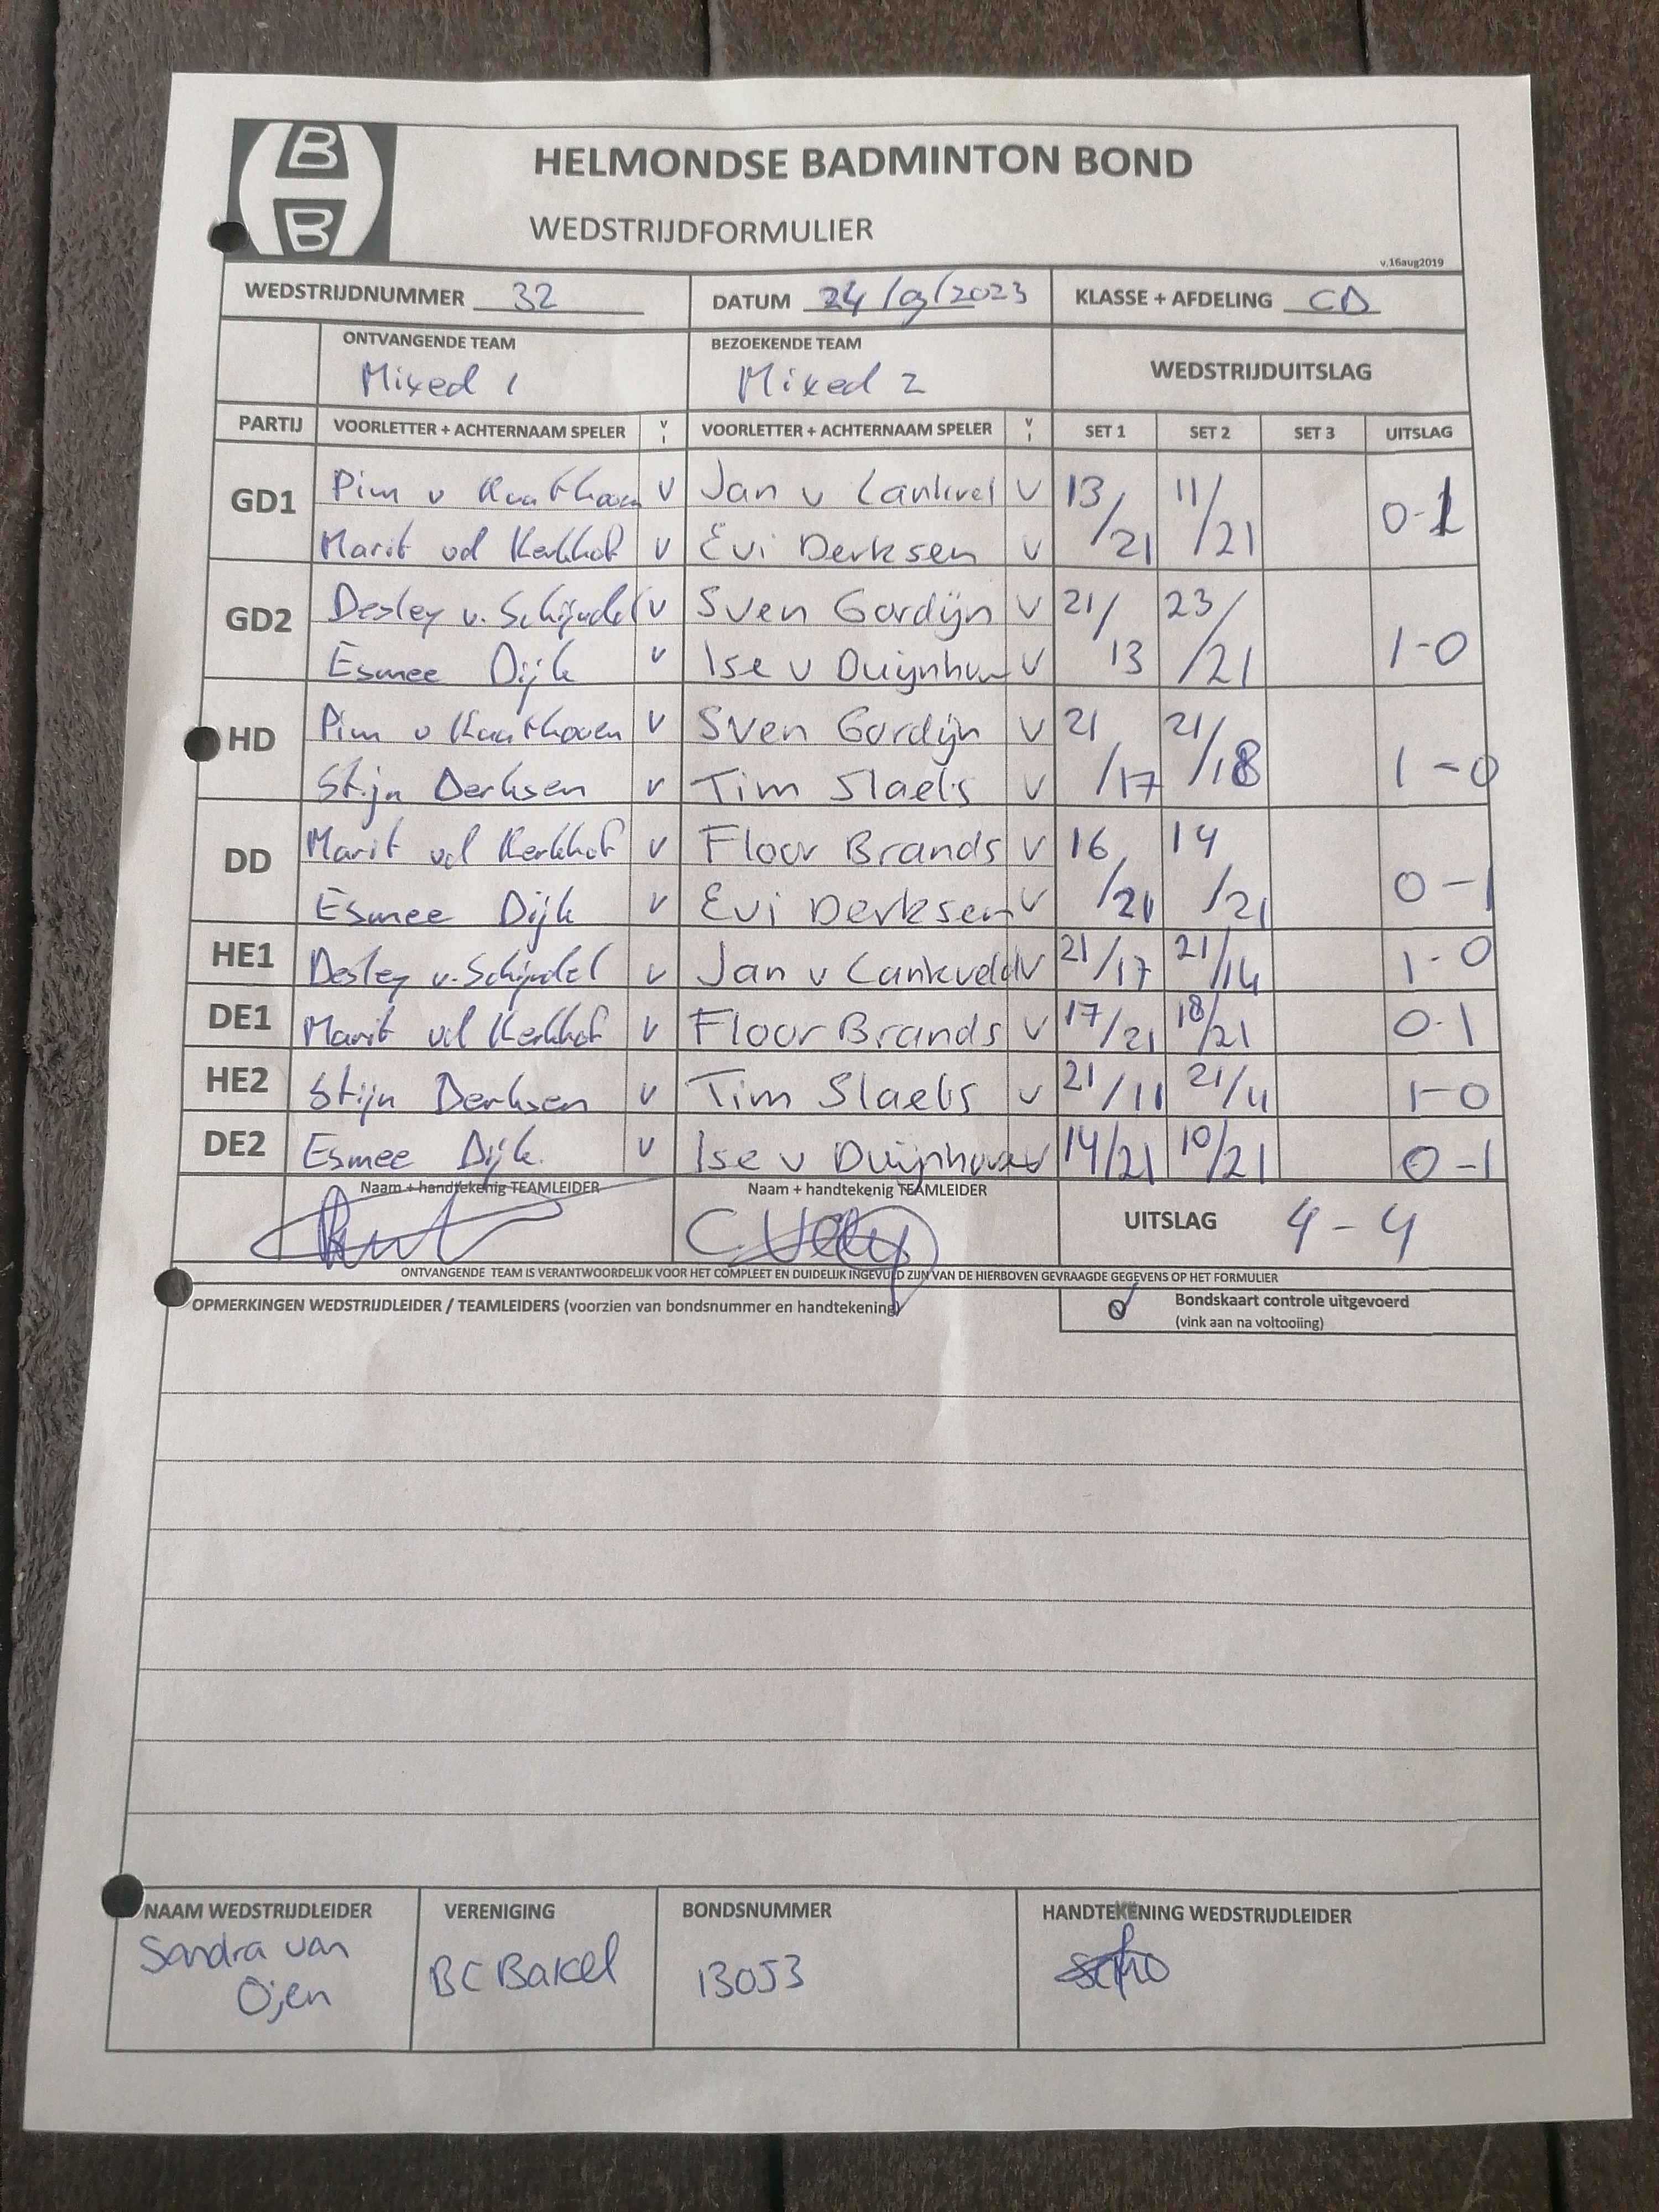 B
B
HELMONDSE BADMINTON BOND
WEDSTRIJDFORMULIER
v.16aug2019
WEDSTRIJDNUMMER 32 DATUM 24/9/2023 KLASSE + AFDELING CD
ONTVANGENDE TEAM BEZOEKENDE TEAM WEDSTRIJDUITSLAG
Mixed 1 Mixed 2
PARTIJ VOORLETTER + ACHTERNAAM SPELER V I VOORLETTER + ACHTERNAAM SPELER V I SET 1 SET 2 SET 3 UITSLAG
GD1 Pim v Kaathoven v Jan v Lankvel v 13/21 11/21 0-1
Marit vd Kerkhof v Evi Derksen v
GD2 Desley v. Schijndel v Sven Gordijn v 21/13 23/21 1-0
Esmee Dijk v Ise v Duijnhoven v
HD Pim v Kaathoven v Sven Gordijn v 21/17 21/18 1-0
Stijn Derksen v Tim Slaets v
DD Marit vd Kerkhof v Floor Brands v 16/21 14/21 0-1
Esmee Dijk v Evi Derksen v
HE1 Desley v. Schijndel v Jan v Lankveld v 21/17 21/14 1-0
DE1 Marit vd Kerkhof v Floor Brands v 17/21 18/21 0-1
HE2 Stijn Derksen v Tim Slaets v 21/11 21/11 1-0
DE2 Esmee Dijk v Ise v Duijnhoven v 14/21 10/21 0-1
Naam + handtekenig TEAMLEIDER Naam + handtekenig TEAMLEIDER
UITSLAG 4-4
ONTVANGENDE TEAM IS VERANTWOORDELIJK VOOR HET COMPLEET EN DUIDELIJK INGEVULD ZIJN VAN DE HIERBOVEN GEVRAAGDE GEGEVENS OP HET FORMULIER
OPMERKINGEN WEDSTRIJDLEIDER / TEAMLEIDERS (voorzien van bondsnummer en handtekening) Bondskaart controle uitgevoerd
(vink aan na voltooiing)
NAAM WEDSTRIJDLEIDER VERENIGING BONDSNUMMER HANDTEKENING WEDSTRIJDLEIDER
Sandra van BC Bakel 13053
Oijen